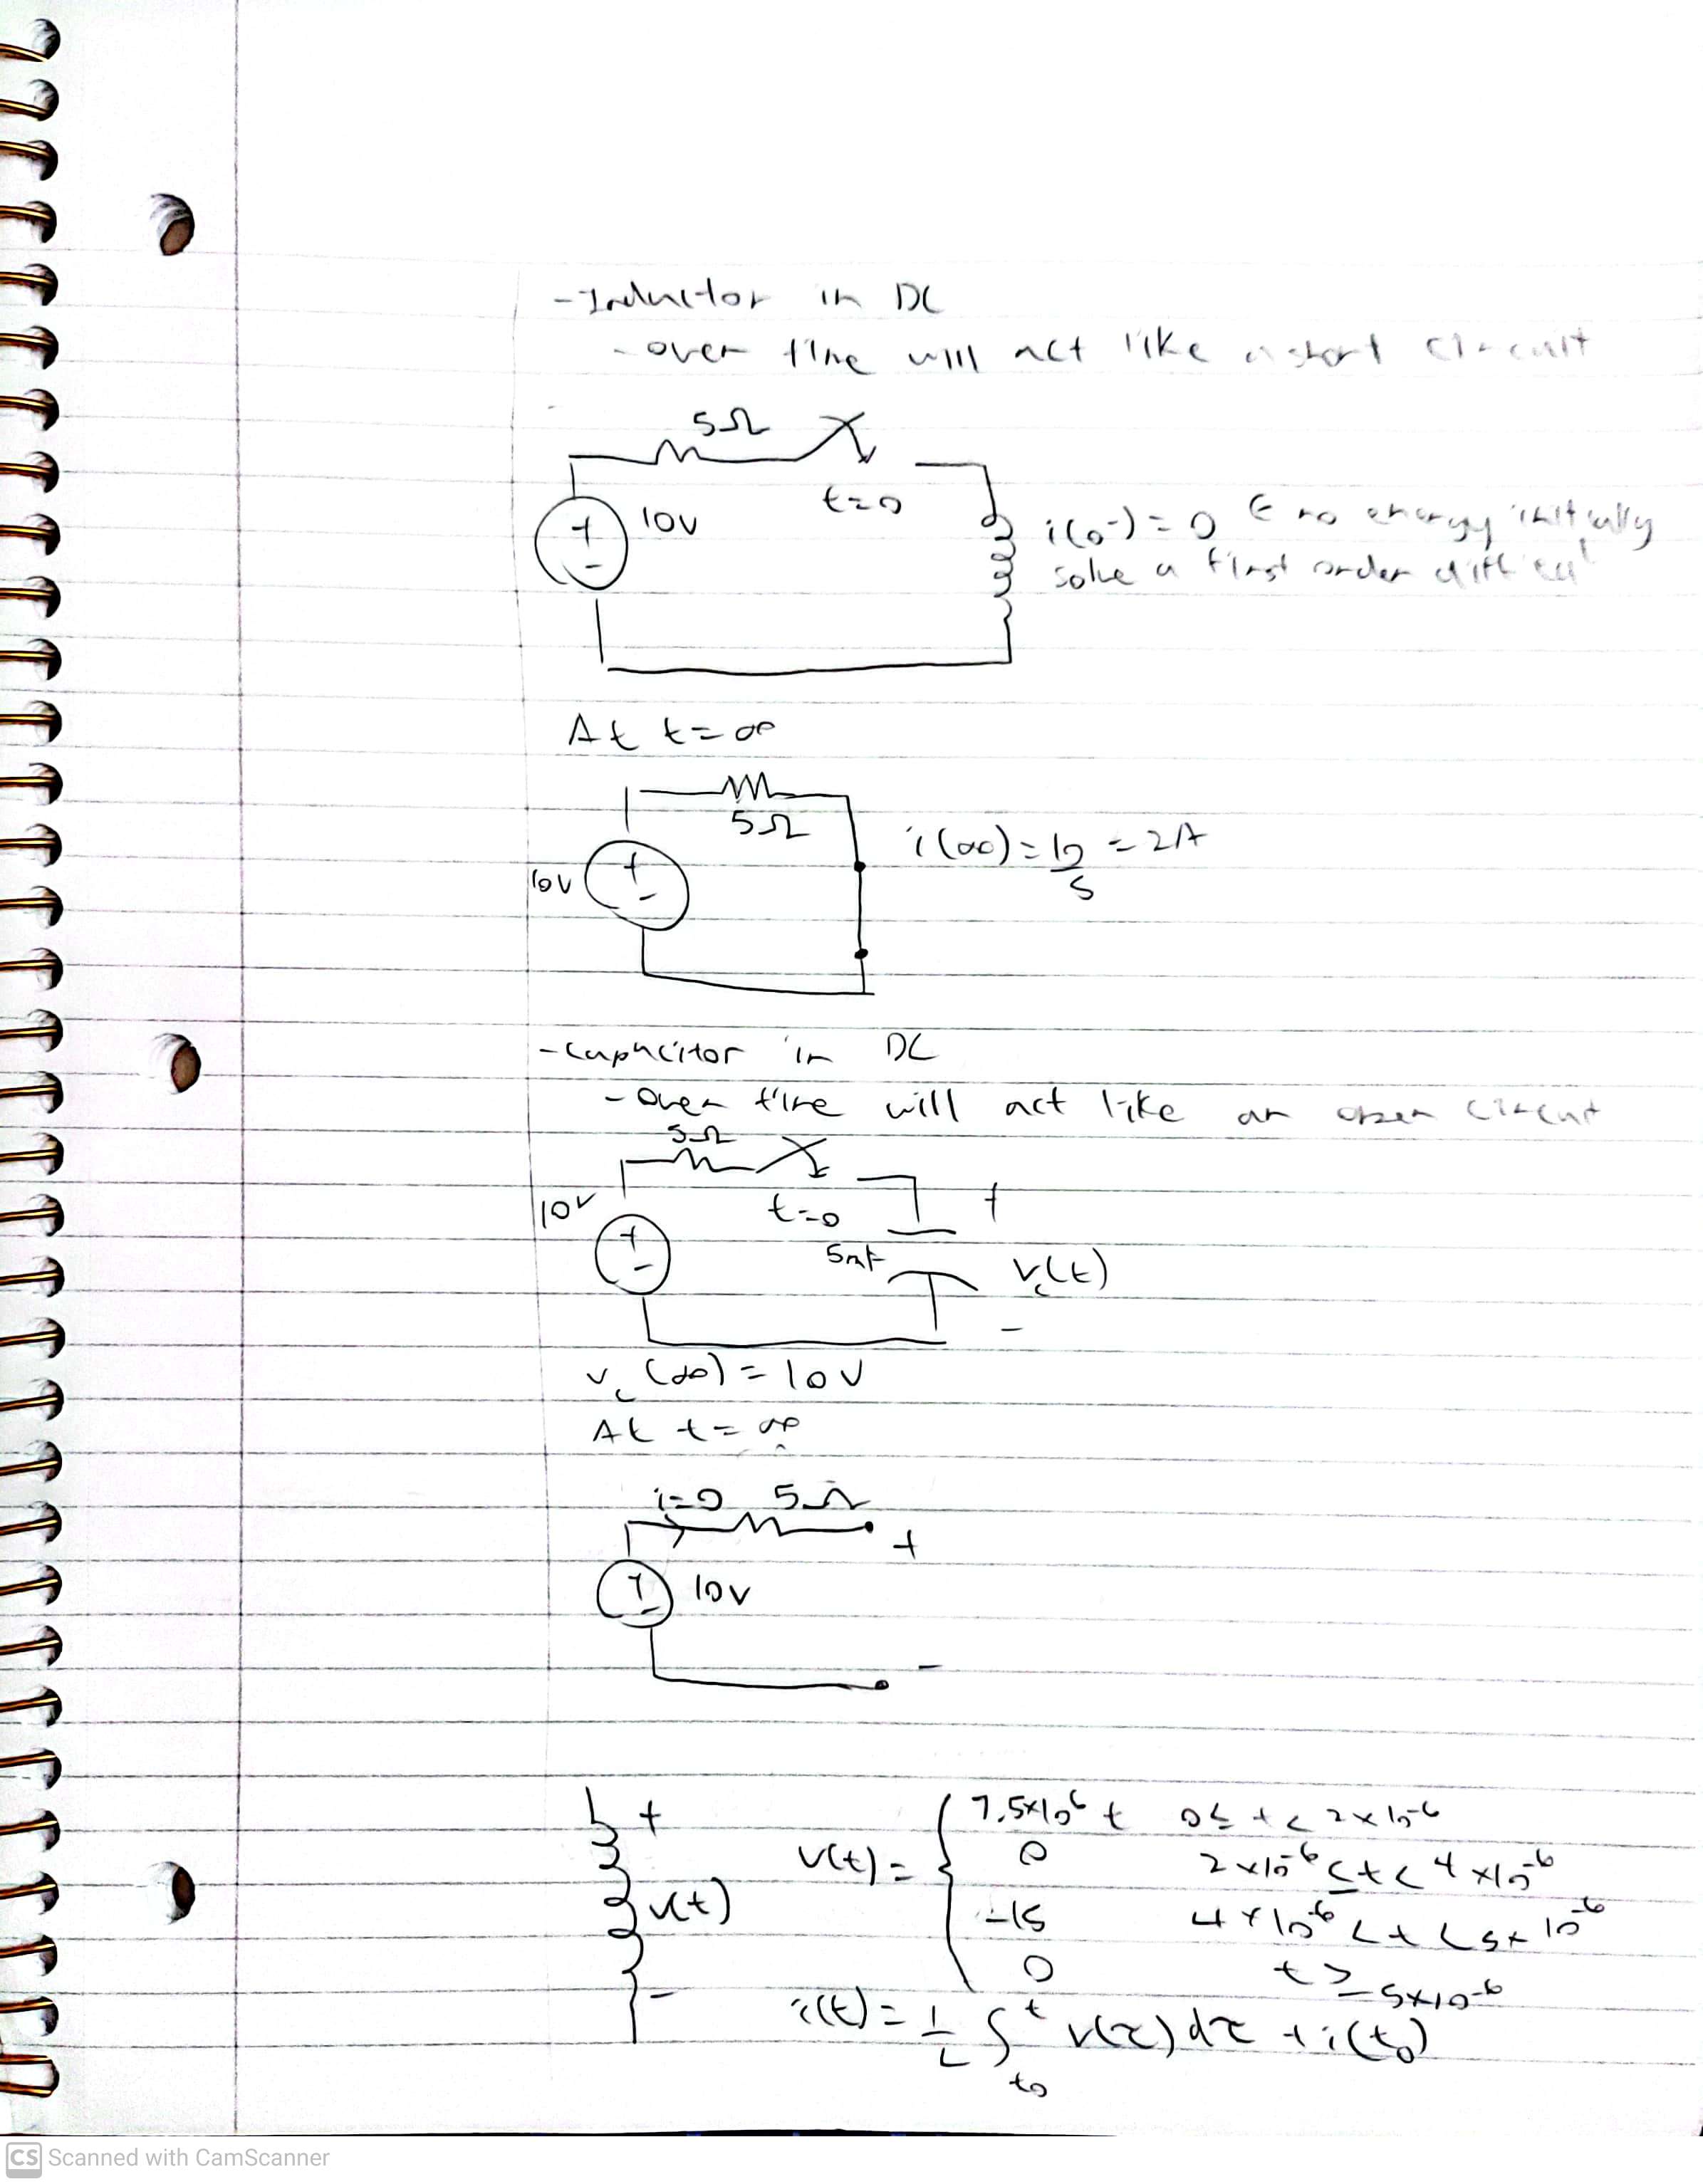 - Inductor in DC
- over time will act like a short circuit
5Ω
t=0
10V
+
-
i(0⁻) = 0 ← no energy initially
solve a first order diff eq
At t=∞
5Ω
10V
+
-
i(∞) = 10/5 = 2A
- capacitor in DC
- over time will act like an open circuit
5Ω
10V
t=0
+
-
5mF
+
v_c(t)
-
v_c(∞) = 10V
At t=∞
i=0 5Ω
+
+
-
10V
-
+
v(t)
-
v(t) = { 7.5×10⁶ t 0≤t<2×10⁻⁶
0 2×10⁻⁶≤t<4×10⁻⁶
-15 4×10⁻⁶<t<5×10⁻⁶
0 t≥5×10⁻⁶
i(t) = 1/L ∫_{t₀}^{t} v(τ)dτ + i(t₀)
CS Scanned with CamScanner